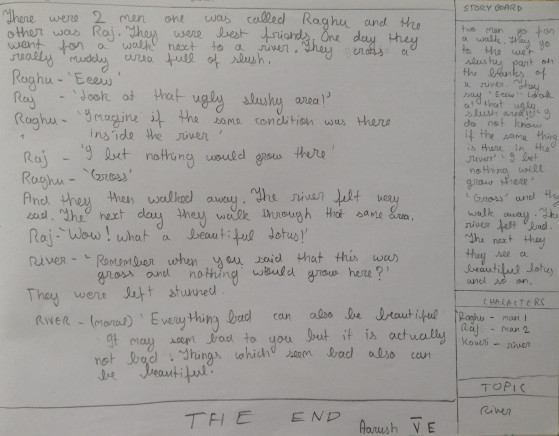 There were 2 men one was called Raghu and the
other was Raj. They were best friends. One day they
went for a walk next to a river. They cross a
really muddy area full of slush.
Raghu - 'Eeew'
Raj - 'Look at that ugly slushy area!'
Raghu - 'Imagine if the same condition was there
inside the river'
Raj - 'I bet nothing would grow there'
Raghu - 'Gross'
And they then walked away. The river felt very
sad. The next day they walk through that same area.
Raj - 'Wow! what a beautiful lotus!'
River - 'Remember when you said that this was
gross and nothing would grow here?'
They were left stunned.
RIVER - (moral) 'Everything bad can also be beautiful
It may seem bad to you but it is actually
not bad. Things which seem bad also can
be beautiful.
THE END
Aarush V E
STORY BOARD
two men go for
a walk. They go
to the wet
slushy part on
the banks of
a river. They
say 'Eeew' 'Look
at that ugly
slush area!' 'I
do not know
if the same thing
is there in the
river' 'I bet
nothing will
grow there'
'Gross' and they
walk away. The
river felt bad.
The next they
they see a
beautiful lotus
and so on.
CHARACTERS
Raghu - man 1
Raj - man 2
Kaveri - river
TOPIC
River